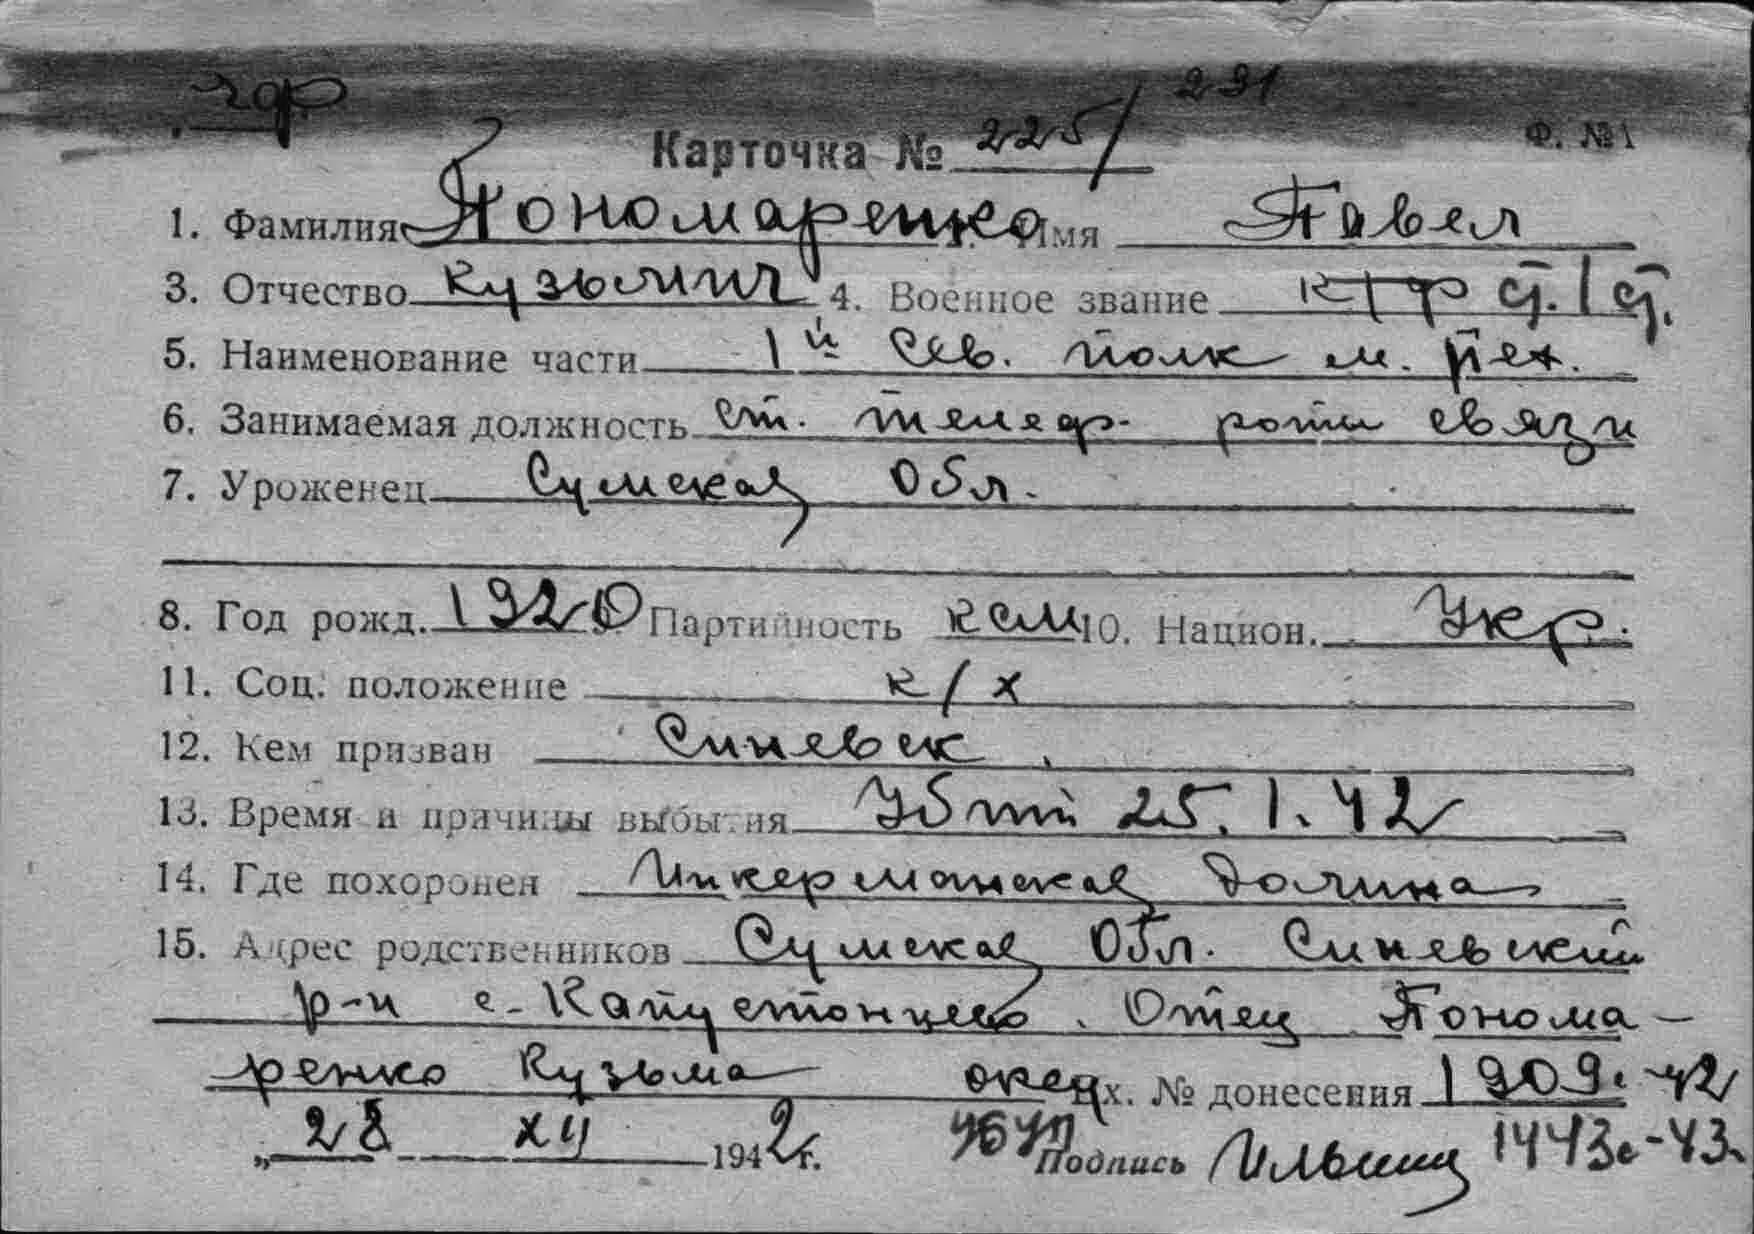 291
Карточка № 225/ Ф. №1
1. Фамилия Пономаренко Имя Павел
3. Отчество Кузьмич 4. Военное звание к/ф ст. | ст.
5. Наименование части 1й Сев. полк м. пех.
6. Занимаемая должность ст. телеф. роты связи
7. Уроженец Сумская Обл.
8. Год рожд. 1920 Партийность ксм 10. Национ. Укр.
11. Соц. положение к/х
12. Кем призван Синевск.
13. Время и причины выбытия Убит 25.1.42
14. Где похоронен Инкерманская долина
15. Адрес родственников Сумская Обл. Синевский
р-н с. Отец Понома-
ренко Кузьма Вх. № донесения 1909с-42
„28 XII 1942 г. Подпись 1443с-43